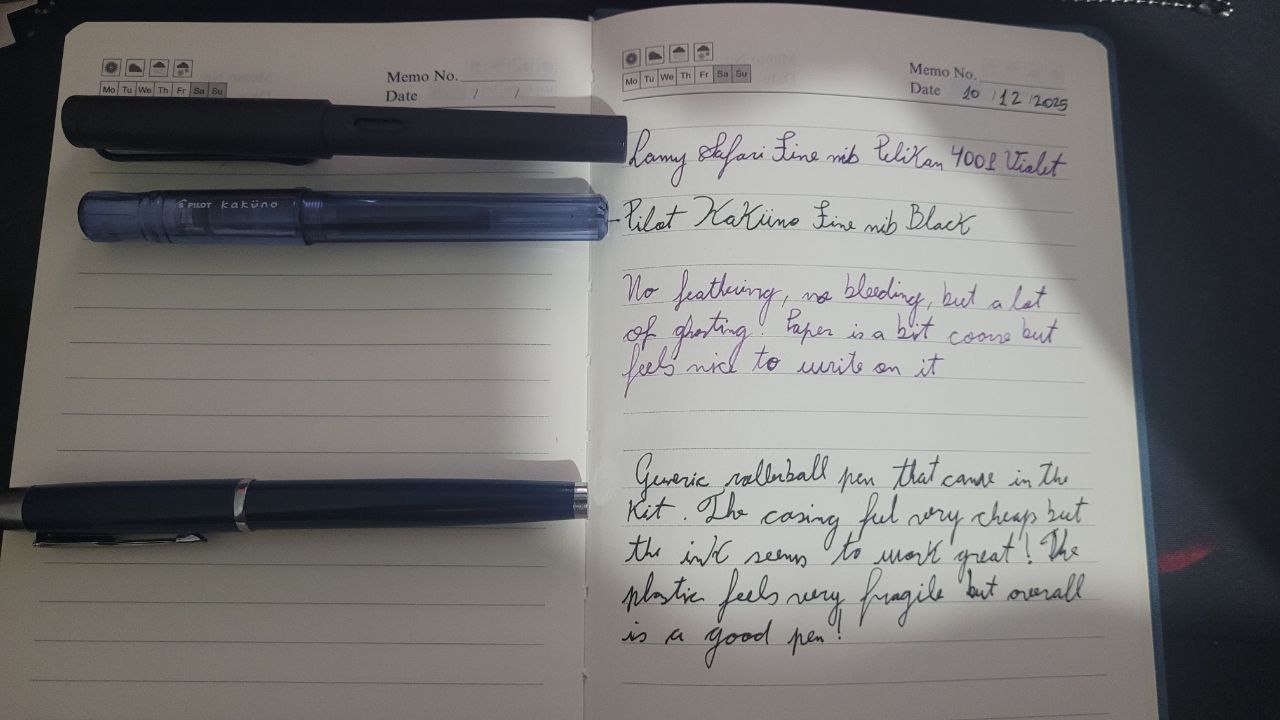 Memo No.
Mo Tu We Th Fr Sa Su
Date / /
PILOT kaküno
Memo No.
Mo Tu We Th Fr Sa Su
Date 10 / 12 / 2025
Lamy Safari Fine nib Pelikan 4001 Violet
Pilot Kaküno Fine nib Black
No feathering, no bleeding, but a lot
of ghosting. Paper is a bit coarse but
feels nice to write on it
Generic rollerball pen that came in the
Kit. The casing feel very cheap but
the ink seems to work great! The
plastic feels very fragile but overall
is a good pen!